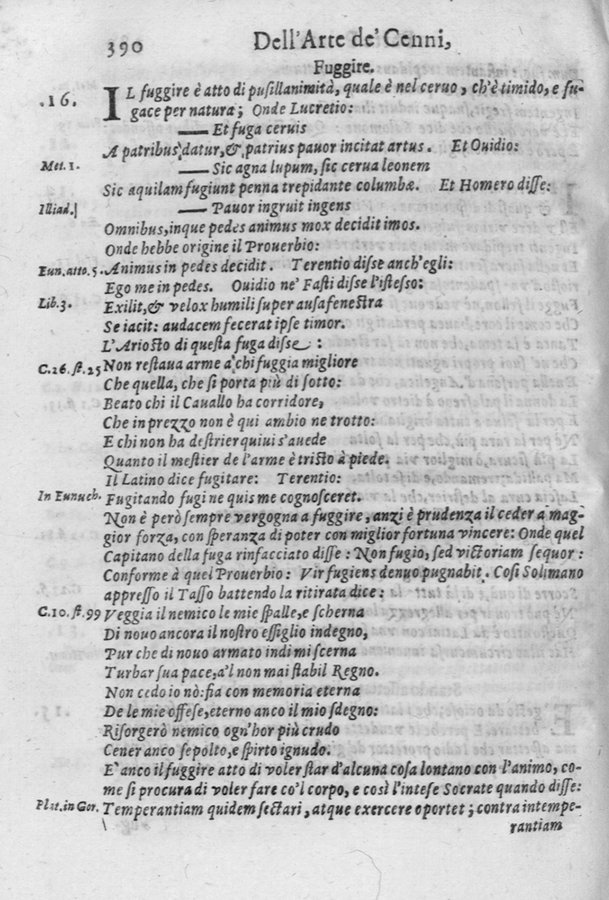 390 Dell'Arte de' Cenni,
Fuggire.
.16. IL fuggire è atto di pusillanimità, quale è nel ceruo, ch'è timido, e fu-
gace per natura; Onde Lucretio:
—— Et fuga ceruis
A patribus datur, & patrius pauor incitat artus. Et Ouidio:
Met. 1. —— Sic agna lupum, sic cerua leonem
Sic aquilam fugiunt penna trepidante columbæ. Et Homero disse:
Illiad. —— Pauor ingruit ingens
Omnibus, inque pedes animus mox decidit imos.
Onde hebbe origine il Prouerbio:
Eun. atto. 5. Animus in pedes decidit. Terentio disse anch'egli:
Ego me in pedes. Ouidio ne' Fasti disse l'istesso:
Lib. 3. Exilit, & velox humili super ausa fenestra
Se iacit: audacem fecerat ipse timor.
L'Ariosto di questa fuga disse:
C. 26. st. 25 Non restaua arme à chi fuggia migliore
Che quella, che si porta più di sotto:
Beato chi il Cauallo ha corridore,
Che in prezzo non è qui ambio ne trotto:
E chi non ha destrier quiui s'auede
Quanto il mestier de l'arme è tristo à piede.
Il Latino dice fugitare: Terentio:
In Eunuch. Fugitando fugi ne quis me cognosceret.
Non è però sempre vergogna a fuggire, anzi è prudenza il ceder a mag-
gior forza, con speranza di poter con miglior fortuna vincere: Onde quel
Capitano della fuga rinfacciato disse: Non fugio, sed victoriam sequor:
Conforme à quel Prouerbio: Vir fugiens denuo pugnabit. Cosi Solimano
appresso il Tasso battendo la ritirata dice:
C. 10. st. 99 Veggia il nemico le mie spalle, e scherna
Di nouo ancora il nostro essiglio indegno,
Pur che di nouo armato indi mi scerna
Turbar sua pace, a'l non mai stabil Regno.
Non cedo io nò: fia con memoria eterna
De le mie offese, eterno anco il mio sdegno:
Risorgerò nemico ogn'hor più crudo
Cener anco sepolto, e spirto ignudo.
E' anco il fuggire atto di voler star d'alcuna cosa lontano con l'animo, co-
me si procura di voler fare co'l corpo, e così l'intese Socrate quando disse:
Plat. in Gor. Temperantiam quidem sectari, atque exercere oportet; contra intempe-
rantiam